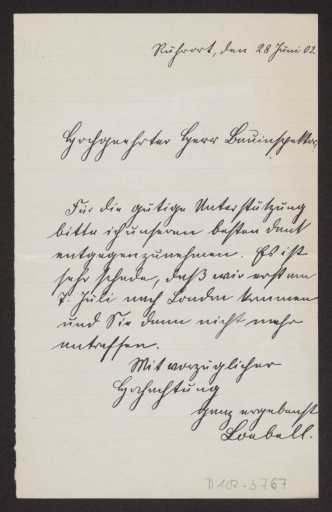 Ruhrort, den 28 Juni 02.
Hochgeehrter Herr Bauinspektor,
Für die gütige Unterstützung
bitte ich unseren besten Dank
entgegenzunehmen. Es ist
sehr schade, daß wir erst am
7. Juli nach London kommen
und Sie dann nicht mehr
antreffen.
Mit vorzüglicher
Hochachtung
Ganz ergebenst
Loebell.
D 102-3767